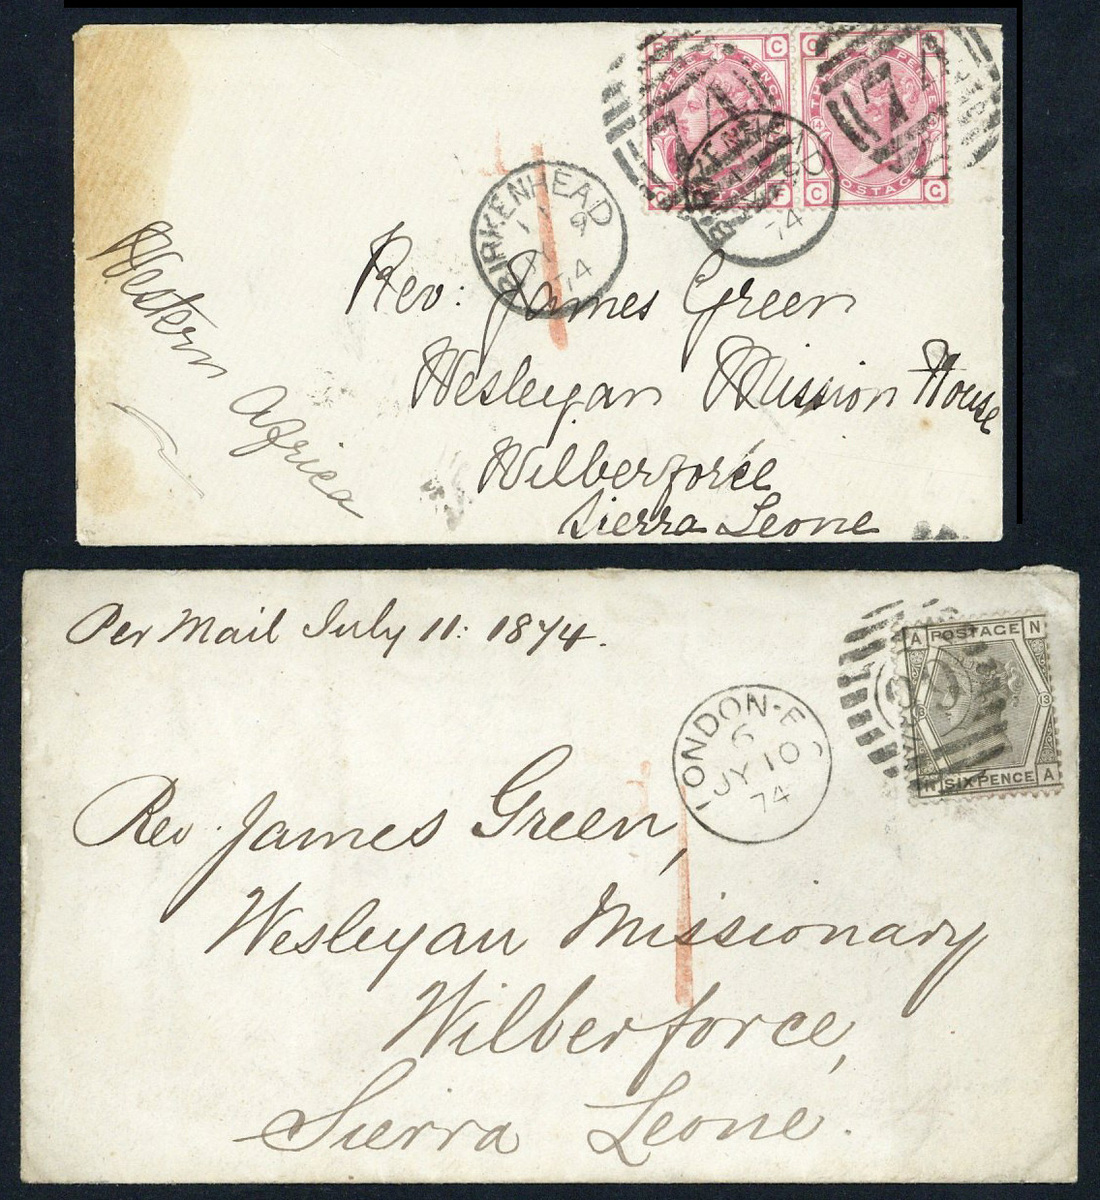 C
C
THREE PENCE
F
C
G
POSTAGE
74
BIRKENHEAD
JY 9
74
BIRKENHEAD
74
Rev: James Green
Wesleyan Mission House
Wilberforce
Sierra Leone
Western Africa
Per Mail July 11. 1874.
A POSTAGE N
13
N SIX PENCE A
LONDON·E
6
JY 10
74
Rev. James Green,
Wesleyan Missionary
Wilberforce,
Sierra Leone.